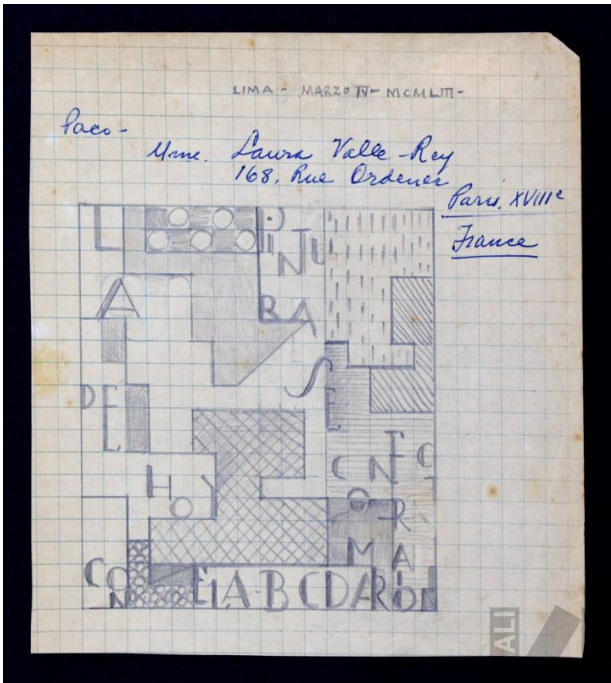 LIMA - MARZO IV - MCMLIII -
Paco -
Mme. Laura Valle-Rey
168, Rue Ordener
Paris, XVIIIe
France
LA
PINTU
RA
DE
HOY
SE
CON
EL A-B CDARIO
ALI